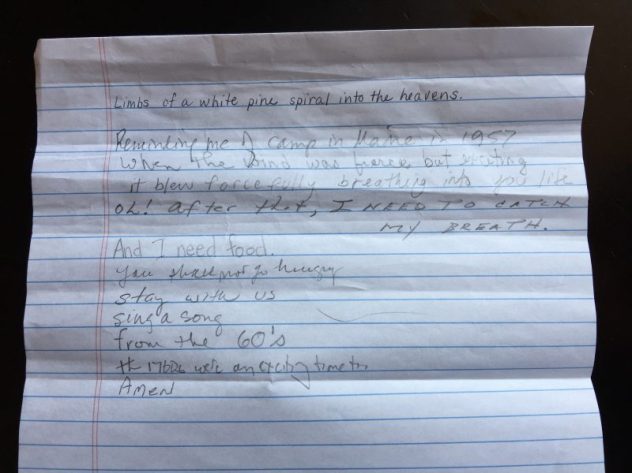 Limbs of a white pine spiral into the heavens.
Reminding me of camp in Maine in 1957
when the wind was fierce but exciting
it blew forcefully breathing into you life
oh! after that, I NEED TO CATCH
MY BREATH.
And I need food.
You shall not go hungry
stay with us
sing a song
from the 60's
the 1960s were an exciting time
Amen